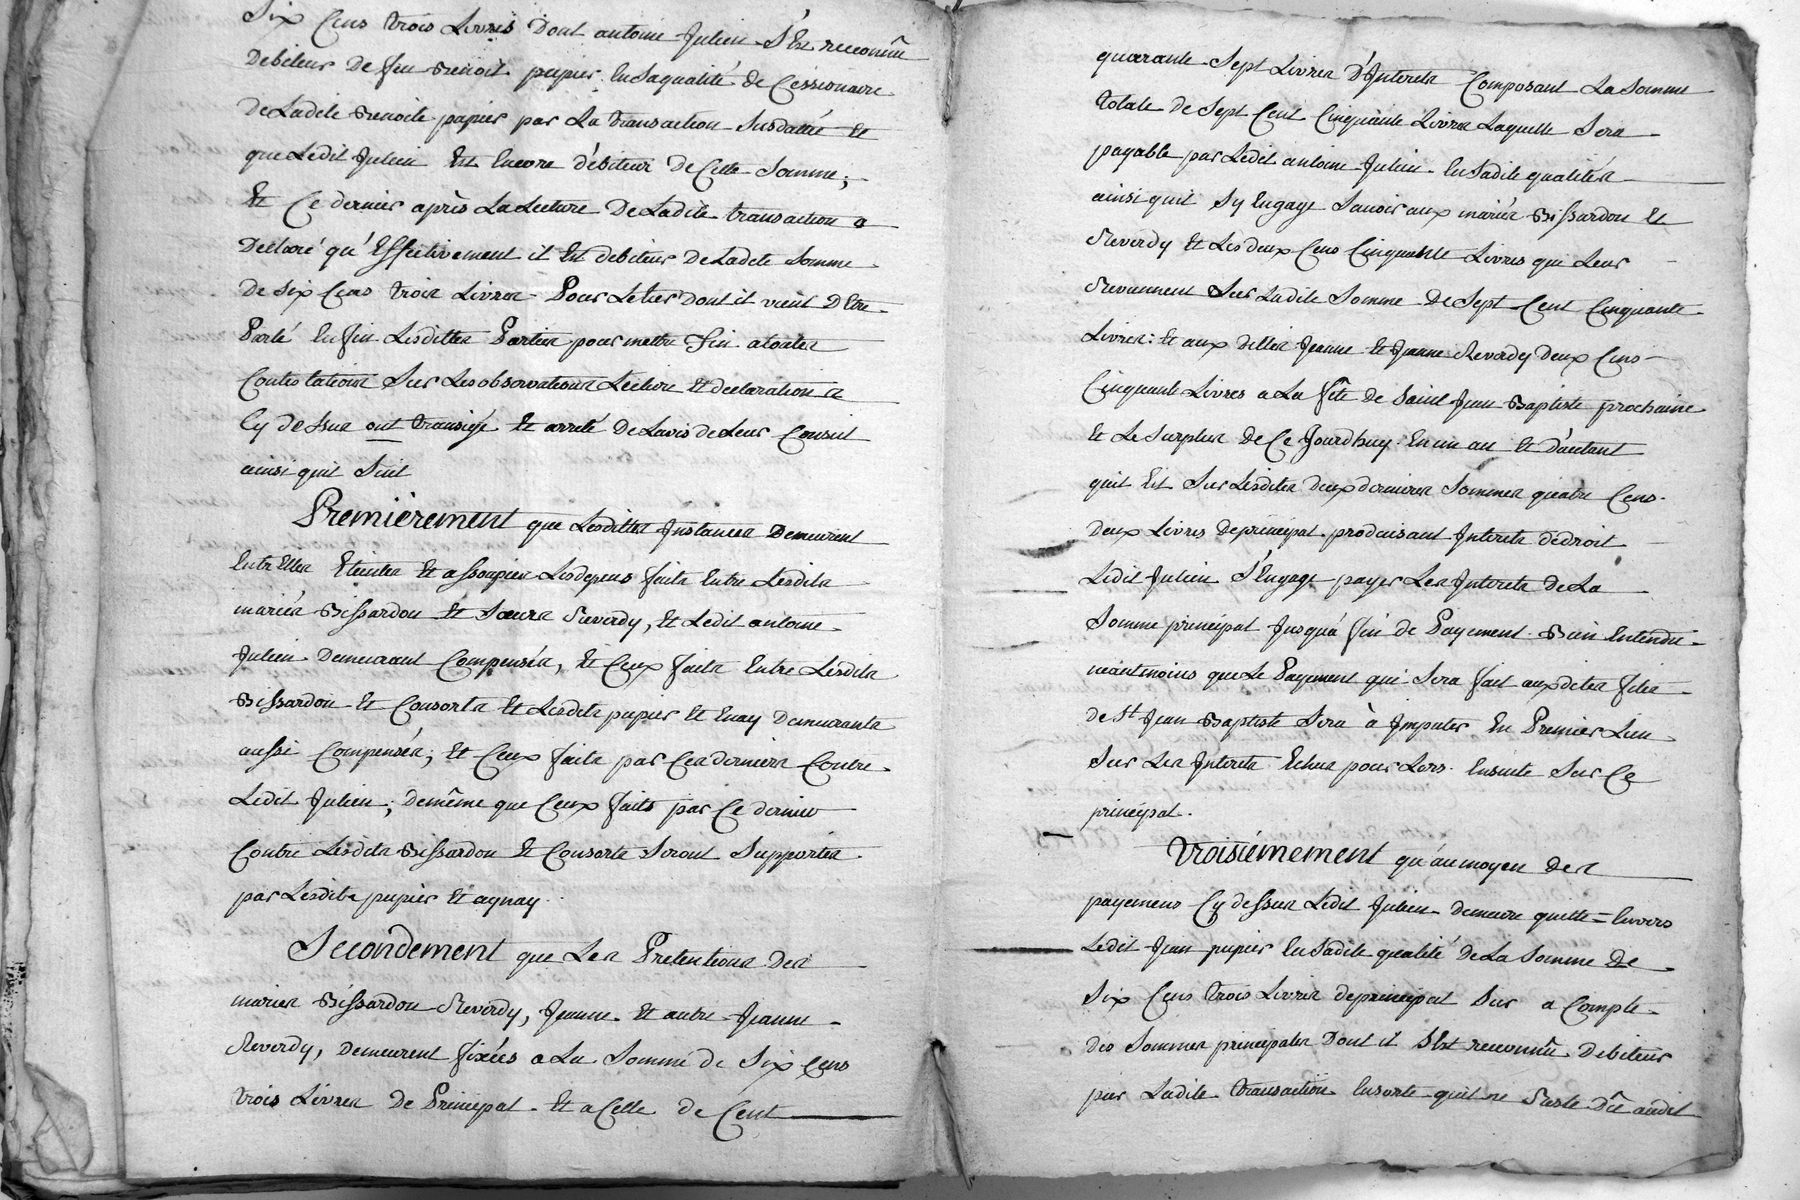 Six Cens trois Livres Dont antoine Julien S'Est reconnû
Debiteur De feu Benoit pupier En Saqualité de Céssionaire
De Ladite Benoite pupier par La transaction Susdattée Et
que Ledit Julien Est Encore débiteur De Cette Somme;
Et Ce dernier après La Lecture De Ladite transaction a
Déclaré qu'Effectivement il Est debiteur De Ladite Somme
De Six Cens trois Livres Pour Letier Dont il vient D'Etre
Parlé Enfin Lesdittes Parties pour mettre fin atoutes
Contestations Sur Les observations Lecture Et declarations
Cy dessus ont transigé Et arreté De Lavis de Leur Conseil
ainsi quil Suit
Premièrement que Lesdittes Instances Demeurent
Entr'Elles Eteintes Et assoupies Lesdepens faits Entre Lesdits
mariés Bissardon Et Soeurs Reverdy, Et Ledit antoine
Julien Demeurant Compensés, Et Ceux faits Entre Lesdits
Bissardon Et Consorts Et Lesdits pupier Et Enay Demeurants
aussi Compensés; Et Ceux faits par Ces derniers Contre
Ledit Julien; demême que Ceux faits par Ce dernier
Contre Lesdits Bissardon Et Consorts Seront Supportés
par Lesdits pupier Et aynay.
Secondement que Les Pretentions Des
mariés Bissardon Reverdy, Jeanne Et autre Jeanne
Reverdy, Demeurent fixées a La Somme de Six Cens
trois Livres De Principal Et a Celle de Cent
quarante Sept Livres d'Interets Composant La Somme
totale de Sept Cent Cinquante Livres Laquelle Sera
payable par Ledit antoine Julien En Sadite qualités
ainsi quil Sy Engage Savoir aux mariés Bissardon Et
Reverdy Et Les deux Cens Cinquante Livres qui Leur
Reviennent Sur Ladite Somme de Sept Cent Cinquante
Livres: Et aux dlles Jeanne Et Jeanne Reverdy Deux Cens
Cinquante Livres a La fête de Saint Jean Baptiste prochaine
Et Le Surplus de Ce Jourdhuy En un an Et D'autant
quil Est Sur Lesdites deux dernieres Sommes quatre Cens
Deux Livres De principal produisant Interets de droit
Ledit Julien S'Engage payer Les Interets De La
Somme principal Jusqua fin de Payement Bien Entendu
néantmoins que Le Payement qui Sera fait auxdites fetes
de St Jean Baptiste Sera à Imputer En Premier Lieu
Sur Les Interets Echus pour Lors Ensuite Sur Ce
principal.
Troisiémement qu'au moyen des
payemens Cy dessus Ledit Julien demeure quitte Envers
Ledit Jean pupier En Sadite qualité De La Somme de
Six Cens trois Livres de principal Sur a Compte
des Sommes principales Dont il S'Est reconnû Debiteur
par Ladite transaction Ensorte quil ne Reste Dû audit